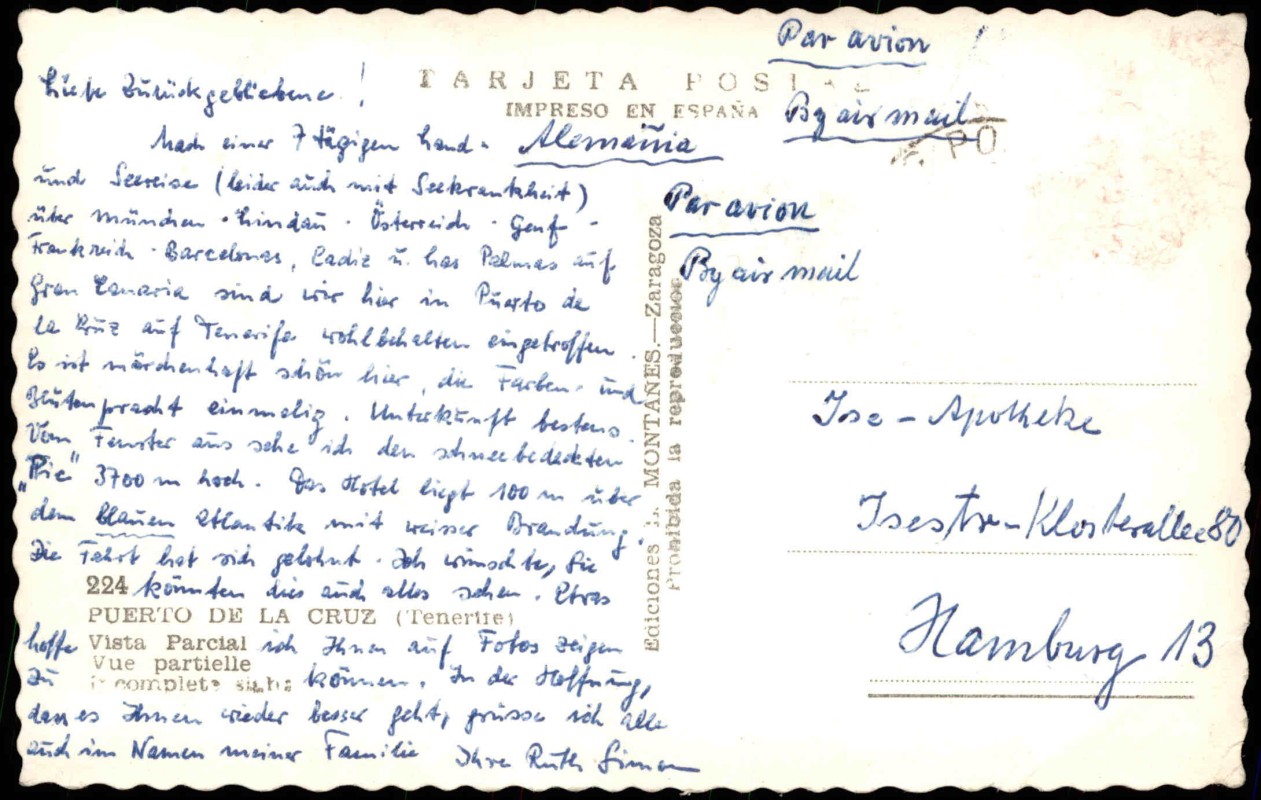 Par avion
TARJETA POSTAL
Liebe Zurückgebliebene!
IMPRESO EN ESPAÑA
By air mail
Nach einer 7 tägigen Land-
Alemania
und Seereise (leider auch mit Seekrankheit)
Par avion
über München - Lindau - Österreich - Genf -
By air mail
Frankreich - Barcelona, Cadiz u. Las Palmas auf
Gran Canaria sind wir hier in Puerto de
la Cruz auf Tenerifa wohlbehalten eingetroffen.
Es ist märchenhaft schön hier, die Farben- und
Blütenpracht einmalig. Unterkunft bestens.
Vom Fenster aus sehe ich den schneebedeckten
"Pic" 3700 m hoch. Das Hotel liegt 100 m über
dem blauen Atlantik mit weisser Brandung.
Die Fahrt hat sich gelohnt. Ich wünschte, Sie
224 könnten dies auch alles sehen. Etwas
PUERTO DE LA CRUZ (Tenerife)
hoffe ich Ihnen auf Fotos zeigen
Vista Parcial
Vue partielle
zu können. In der Hoffnung,
dass es Ihnen wieder besser geht, grüsse ich alle
auch im Namen meiner Familie Ihre Ruth Simon
Ediciones MONTAÑES.—Zaragoza
Prohibida la reproduccion
Ise-Apotheke
Isestr-Klosterallee 80
Hamburg 13